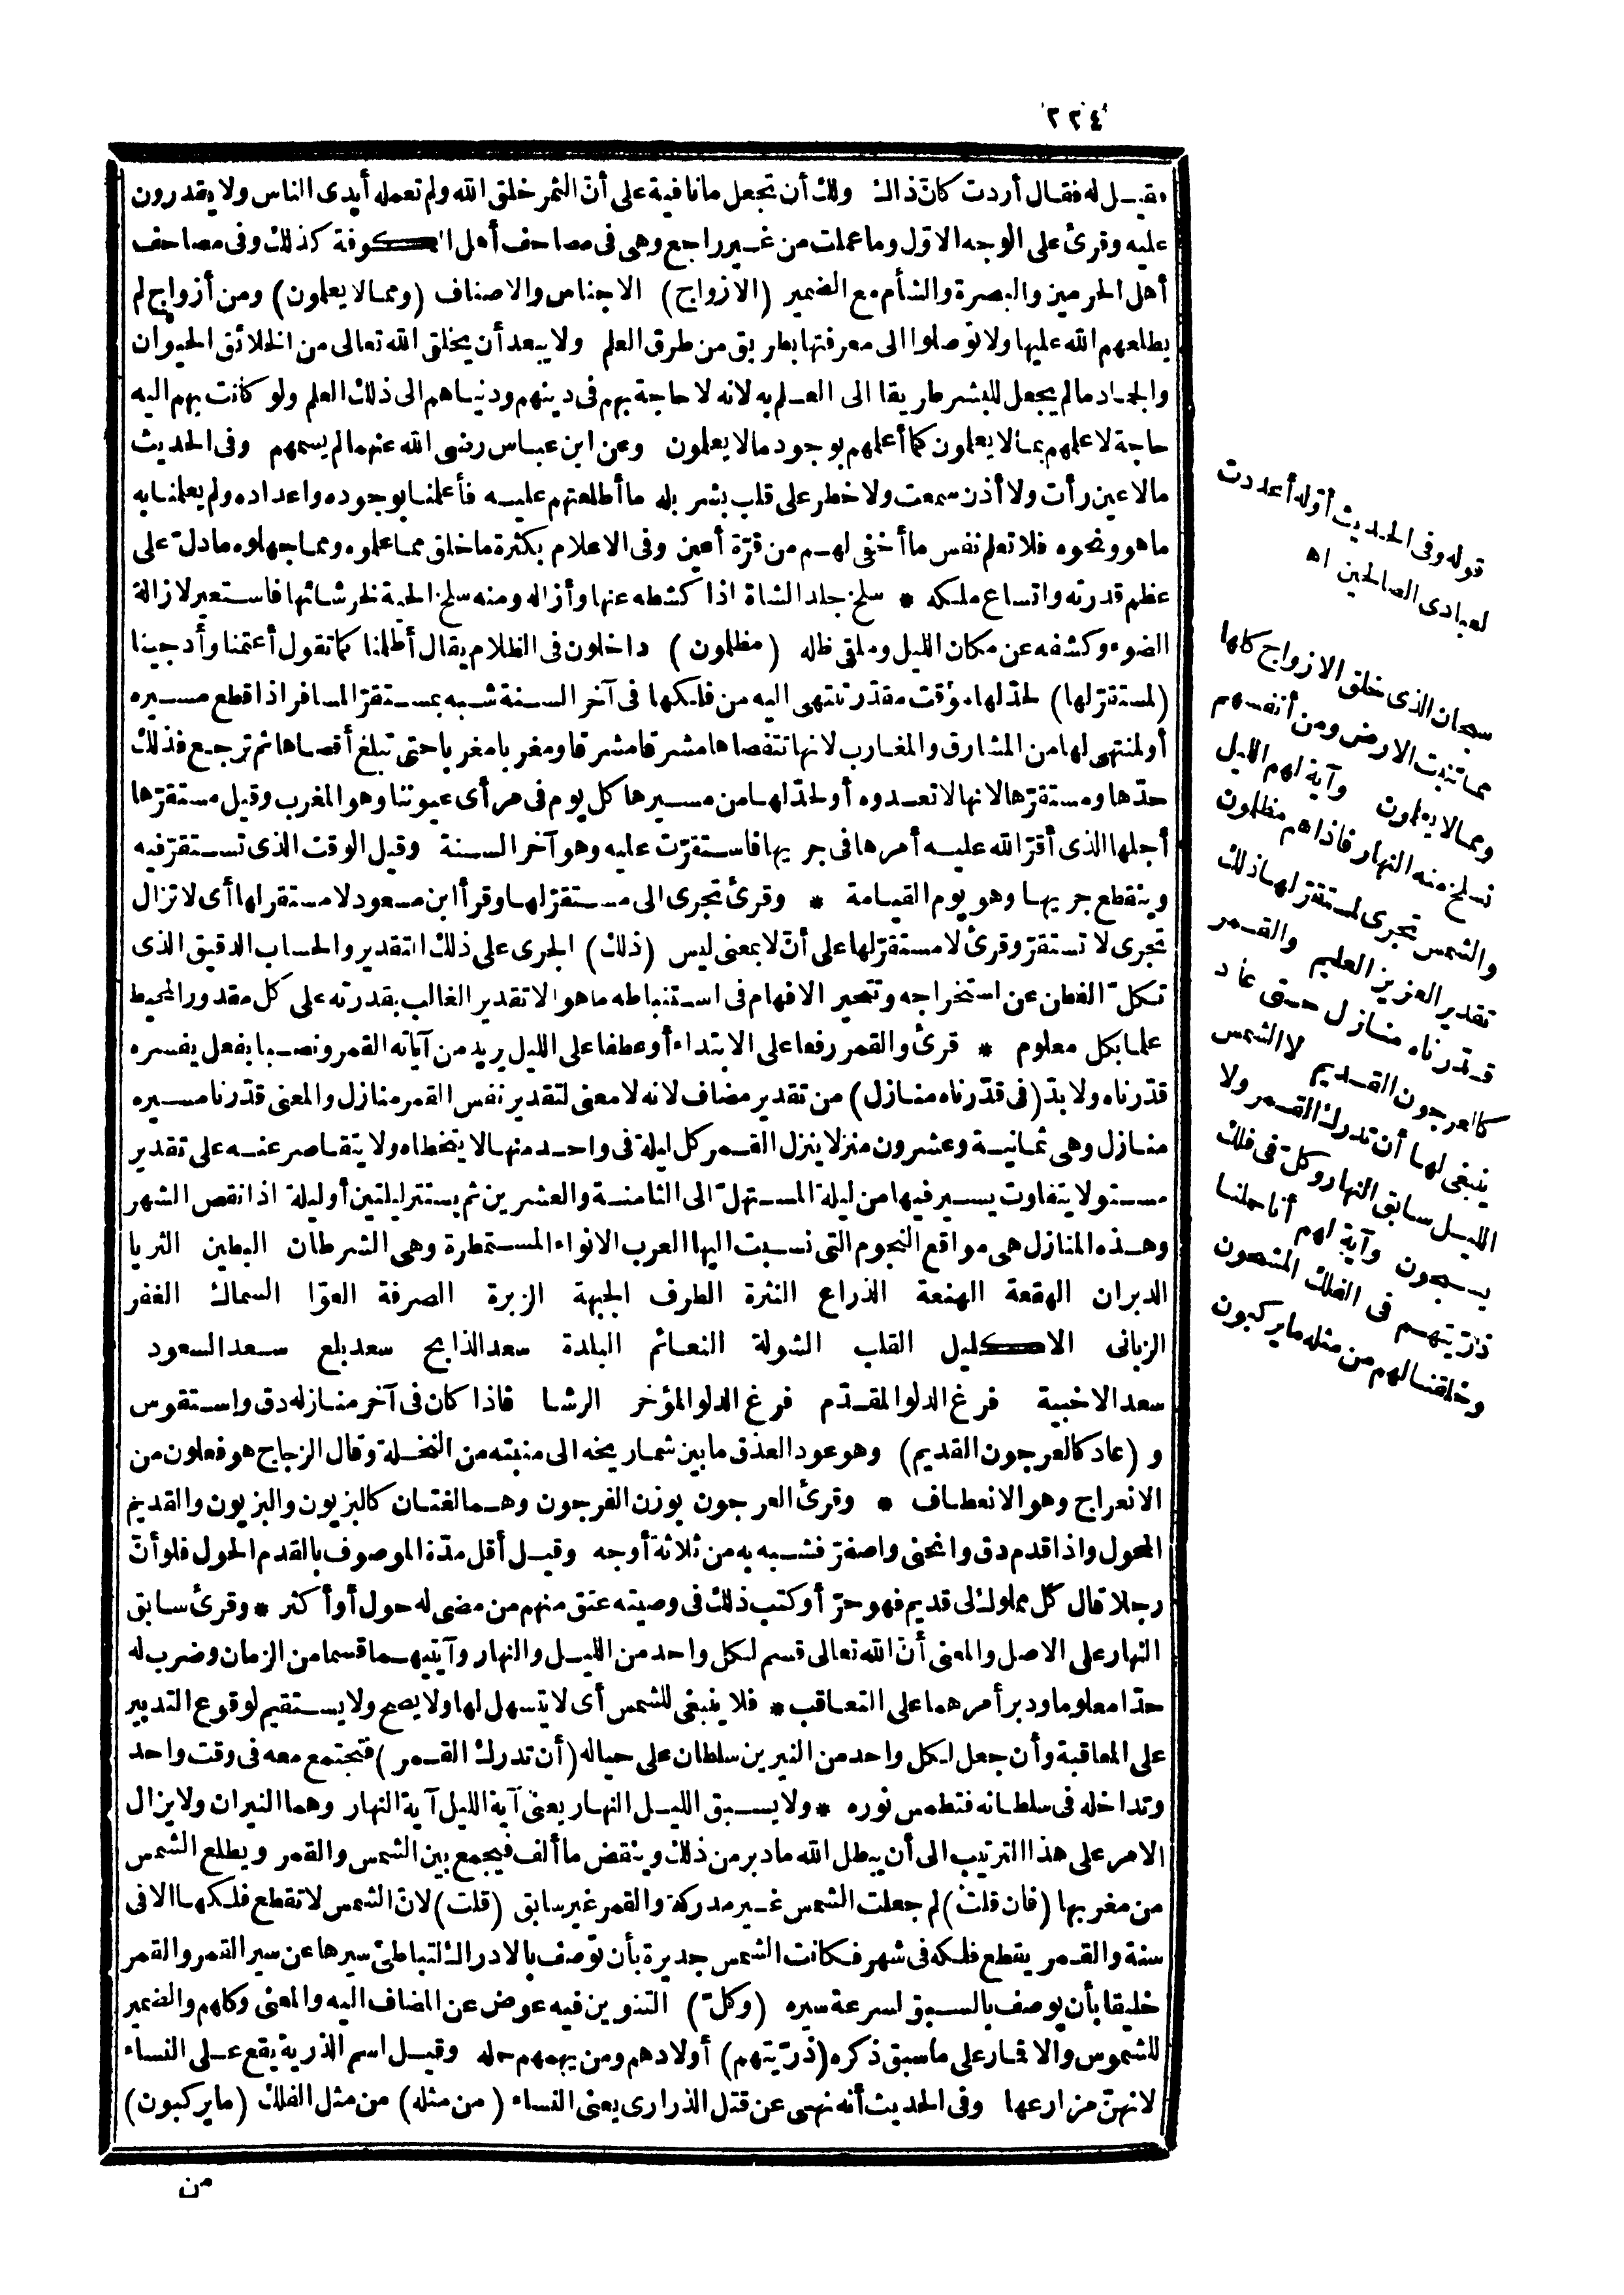 ٢٢٤
فقيل له فقال أردت كان ذاك ولك أن تجعل ما نافية على أن الثمر خلق الله ولم تعمله أيدى الناس ولا يقدرون
عليه وقرئ على الوجه الاول وما عملت من غير راجع وهى فى مصاحف أهل الكوفة كذلك وفى مصاحف
أهل الحرمين والبصرة والشأم مع الضمير (الازواج) الاجناس والاصناف (ومما لا يعلمون) ومن أزواج لم
يطلعهم الله عليها ولا توصلوا الى معرفتها بطريق من طرق العلم ولا يبعد أن يخلق الله تعالى من الخلائق الحيوان
والجماد ما لم يجعل للبشر طريقا الى العلم به لانه لا حاجة بهم فى دينهم ودنياهم الى ذلك العلم ولو كانت بهم اليه
حاجة لاعلمهم بما لا يعلمون كما أعلمهم بوجود ما لا يعلمون وعن ابن عباس رضى الله عنهما لم يسمهم وفى الحديث
ما لا عين رأت ولا أذن سمعت ولا خطر على قلب بشر بله ما أطلعتهم عليه فأعلمنا بوجوده واعداده ولم يعلمنا به
ما هو ونحوه فلا تعلم نفس ما أخفى لهم من قرّة أعين وفى الاعلام بكثرة ما خلق مما علموه ومما جهلوه ما دلّ على
عظم قدرته واتساع ملكه * سلخ جلد الشاة اذا كشطه عنها وأزاله ومنه سلخ الحية لخرشائها فاستعير لازالة
الضوء وكشفه عن مكان الليل وملقى ظله (مظلمون) داخلون فى الظلام يقال أظلمنا كما تقول أعتمنا وأدجينا
(لمستقرّ لها) لحدّ لها مؤقت مقدّر تنتهى اليه من فلكها فى آخر السنة شبه بمستقرّ المسافر اذا قطع مسيره
أو لمنتهى لها من المشارق والمغارب لانها تتقصاها مشرقا مشرقا ومغربا مغربا حتى تبلغ أقصاها ثم ترجع فذلك
حدّها ومستقرّها لانها لا تعدوه أو لحدّ لها من مسيرها كل يوم فى مرأى عيوننا وهو المغرب وقيل مستقرّها
أجلها الذى أقرّ الله عليه أمرها فى جريها فاستقرّت عليه وهو آخر السنة وقيل الوقت الذى تستقرّ فيه
وينقطع جريها وهو يوم القيامة * وقرئ تجرى الى مستقرّ لها وقرأ ابن مسعود لا مستقرّ لها أى لا تزال
تجرى لا تستقرّ وقرئ لا مستقرّ لها على أنّ لا بمعنى ليس (ذلك) الجرى على ذلك التقدير والحساب الدقيق الذى
تكلّ الفطن عن استخراجه وتتحير الافهام فى استنباطه ما هو الا تقدير الغالب بقدرته على كل مقدور المحيط
علما بكل معلوم * قرئ والقمر رفعا على الابتداء أو عطفا على الليل يريد من آياته القمر ونصبا بفعل يفسره
قدّرناه ولا بدّ (فى قدّرناه منازل) من تقدير مضاف لانه لا معنى لتقدير نفس القمر منازل والمعنى قدّرنا مسيره
منازل وهى ثمانية وعشرون منزلا ينزل القمر كل ليلة فى واحد منها لا يتخطاه ولا يتقاصر عنه على تقدير
مستو لا يتفاوت يسير فيها من ليلة المستهلّ الى الثامنة والعشرين ثم يستتر ليلتين أو ليلة اذا نقص الشهر
وهذه المنازل هى مواقع النجوم التى نسبت اليها العرب الانواء المستمطرة وهى الشرطان البطين الثريا
الدبران الهقعة الهنعة الذراع النثرة الطرف الجبهة الزبرة الصرفة العوّا السماك الغفر
الزبانى الاكليل القلب الشولة النعائم البلدة سعد الذابح سعد بلع سعد السعود
سعد الاخبية فرغ الدلو المقدّم فرغ الدلو المؤخر الرشا فاذا كان فى آخر منازله دق واستقوس
و (عاد كالعرجون القديم) وهو عود العذق ما بين شماريخه الى منبته من النخلة وقال الزجاج هو فعلون من
الانعراج وهو الانعطاف * وقرئ العرجون بوزن الفرجون وهما لغتان كالبزيون والبزيون والقديم
المحول واذا قدم دق وانحنى واصفرّ فشبه به من ثلاثة أوجه وقيل أقل مدّة الموصوف بالقدم الحول فلو أنّ
رجلا قال كل مملوك لى قديم فهو حرّ أو كتب ذلك فى وصيته عتق منهم من مضى له حول أو أكثر * وقرئ سابق
النهار على الاصل والمعنى أنّ الله تعالى قسم لكل واحد من الليل والنهار وآيتيهما قسما من الزمان وضرب له
حدّا معلوما ودبر أمرهما على التعاقب * فلا ينبغى للشمس أى لا يتسهل لها ولا يصح ولا يستقيم لوقوع التدبير
على المعاقبة وأن جعل لكل واحد من النيرين سلطان على حياله (أن تدرك القمر) فتجتمع معه فى وقت واحد
وتداخله فى سلطانه فتطمس نوره * ولا يسبق الليل النهار يعنى آية الليل آية النهار وهما النيران ولا يزال
الامر على هذا الترتيب الى أن يبطل الله ما دبر من ذلك وينقض ما ألف فيجمع بين الشمس والقمر ويطلع الشمس
من مغربها (فان قلت) لم جعلت الشمس غير مدركة والقمر غير سابق (قلت) لانّ الشمس لا تقطع فلكها الا فى
سنة والقمر يقطع فلكه فى شهر فكانت الشمس جديرة بأن توصف بالادراك لتباطئ سيرها عن سير القمر والقمر
خليقا بأن يوصف بالسبق لسرعة سيره (وكلّ) التنوين فيه عوض عن المضاف اليه والمعنى وكلهم والضمير
للشموس والاقمار على ما سبق ذكره (ذرّيتهم) أولادهم ومن يهمهم حمله وقيل اسم الذرية يقع على النساء
لانهنّ مزارعها وفى الحديث أنه نهى عن قتل الذرارى يعنى النساء (من مثله) من مثل الفلك (ما يركبون)
من
قوله وفى الحديث أوّله أعددت
لعبادى الصالحين اه
سبحان الذى خلق الازواج كلها
مما تنبت الارض ومن أنفسهم
ومما لا يعلمون وآية لهم الليل
نسلخ منه النهار فاذا هم مظلمون
والشمس تجرى لمستقرّ لها ذلك
تقدير العزيز العليم والقمر
قدّرناه منازل حتى عاد
كالعرجون القديم لا الشمس
ينبغى لها أن تدرك القمر ولا
الليل سابق النهار وكلّ فى فلك
يسبحون وآية لهم أنا حملنا
ذرّيتهم فى الفلك المشحون
وخلقنا لهم من مثله ما يركبون